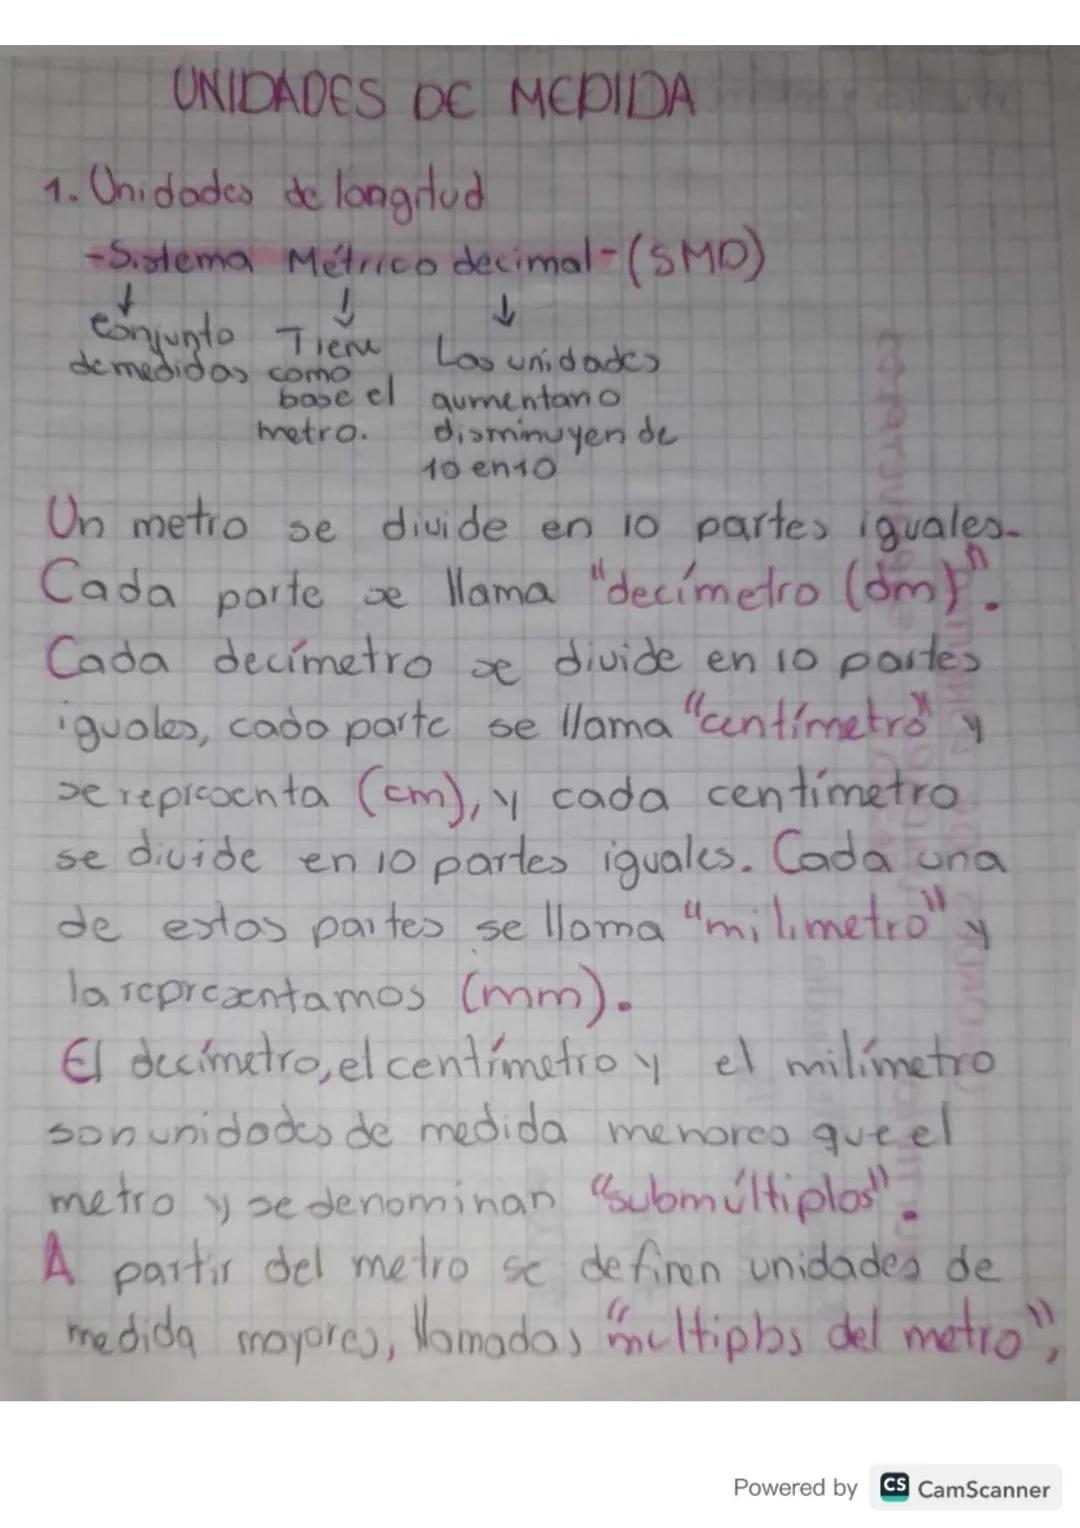 UNIDADES DE MEDIDA
1. Unidades de longitud
-Sistema Métrico decimal-(SMD)
conjunto Tiene Las unidades
de medidas como
base el aumentan o
metro. disminuyen de
10 en 10
Un metro se divide en 10 partes iguales.
Cada parte se llama "decímetro (dm)".
Cada decímetro se divide en 10 partes
iguales, cada parte se llama "centímetro" y
se representa (cm), y cada centímetro
se divide en 10 partes iguales. Cada una
de estas partes se llama "milimetro" y
la representamos (mm).
El decímetro, el centímetro y el milímetro
son unidades de medida menores que el
metro y se denominan "submúltiplos".
A partir del metro se definen unidades de
medida mayores, llamadas "multiplos del metro",
Powered by CS CamScanner